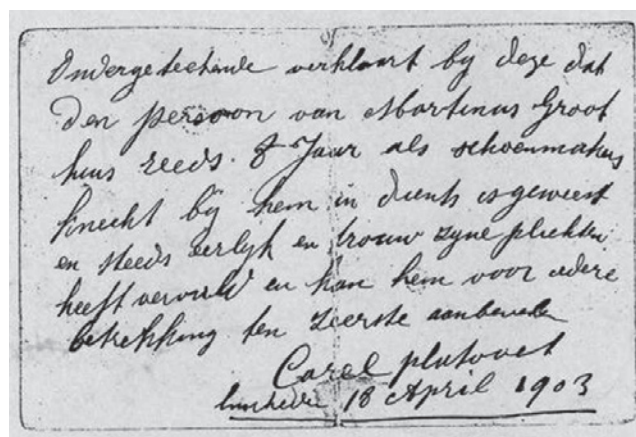 Ondergeteekende verklaart by deze dat
den persoon van Martinus Groot
huis reeds 8 Jaar als schoenmakers
knecht bij hem in dienst is geweest
en steeds eerlyk en trouw zyne plichten
heeft vervuld en kan hem voor iedere
betrekking ten zeerste aanbevelen
Carel
18 April 1903